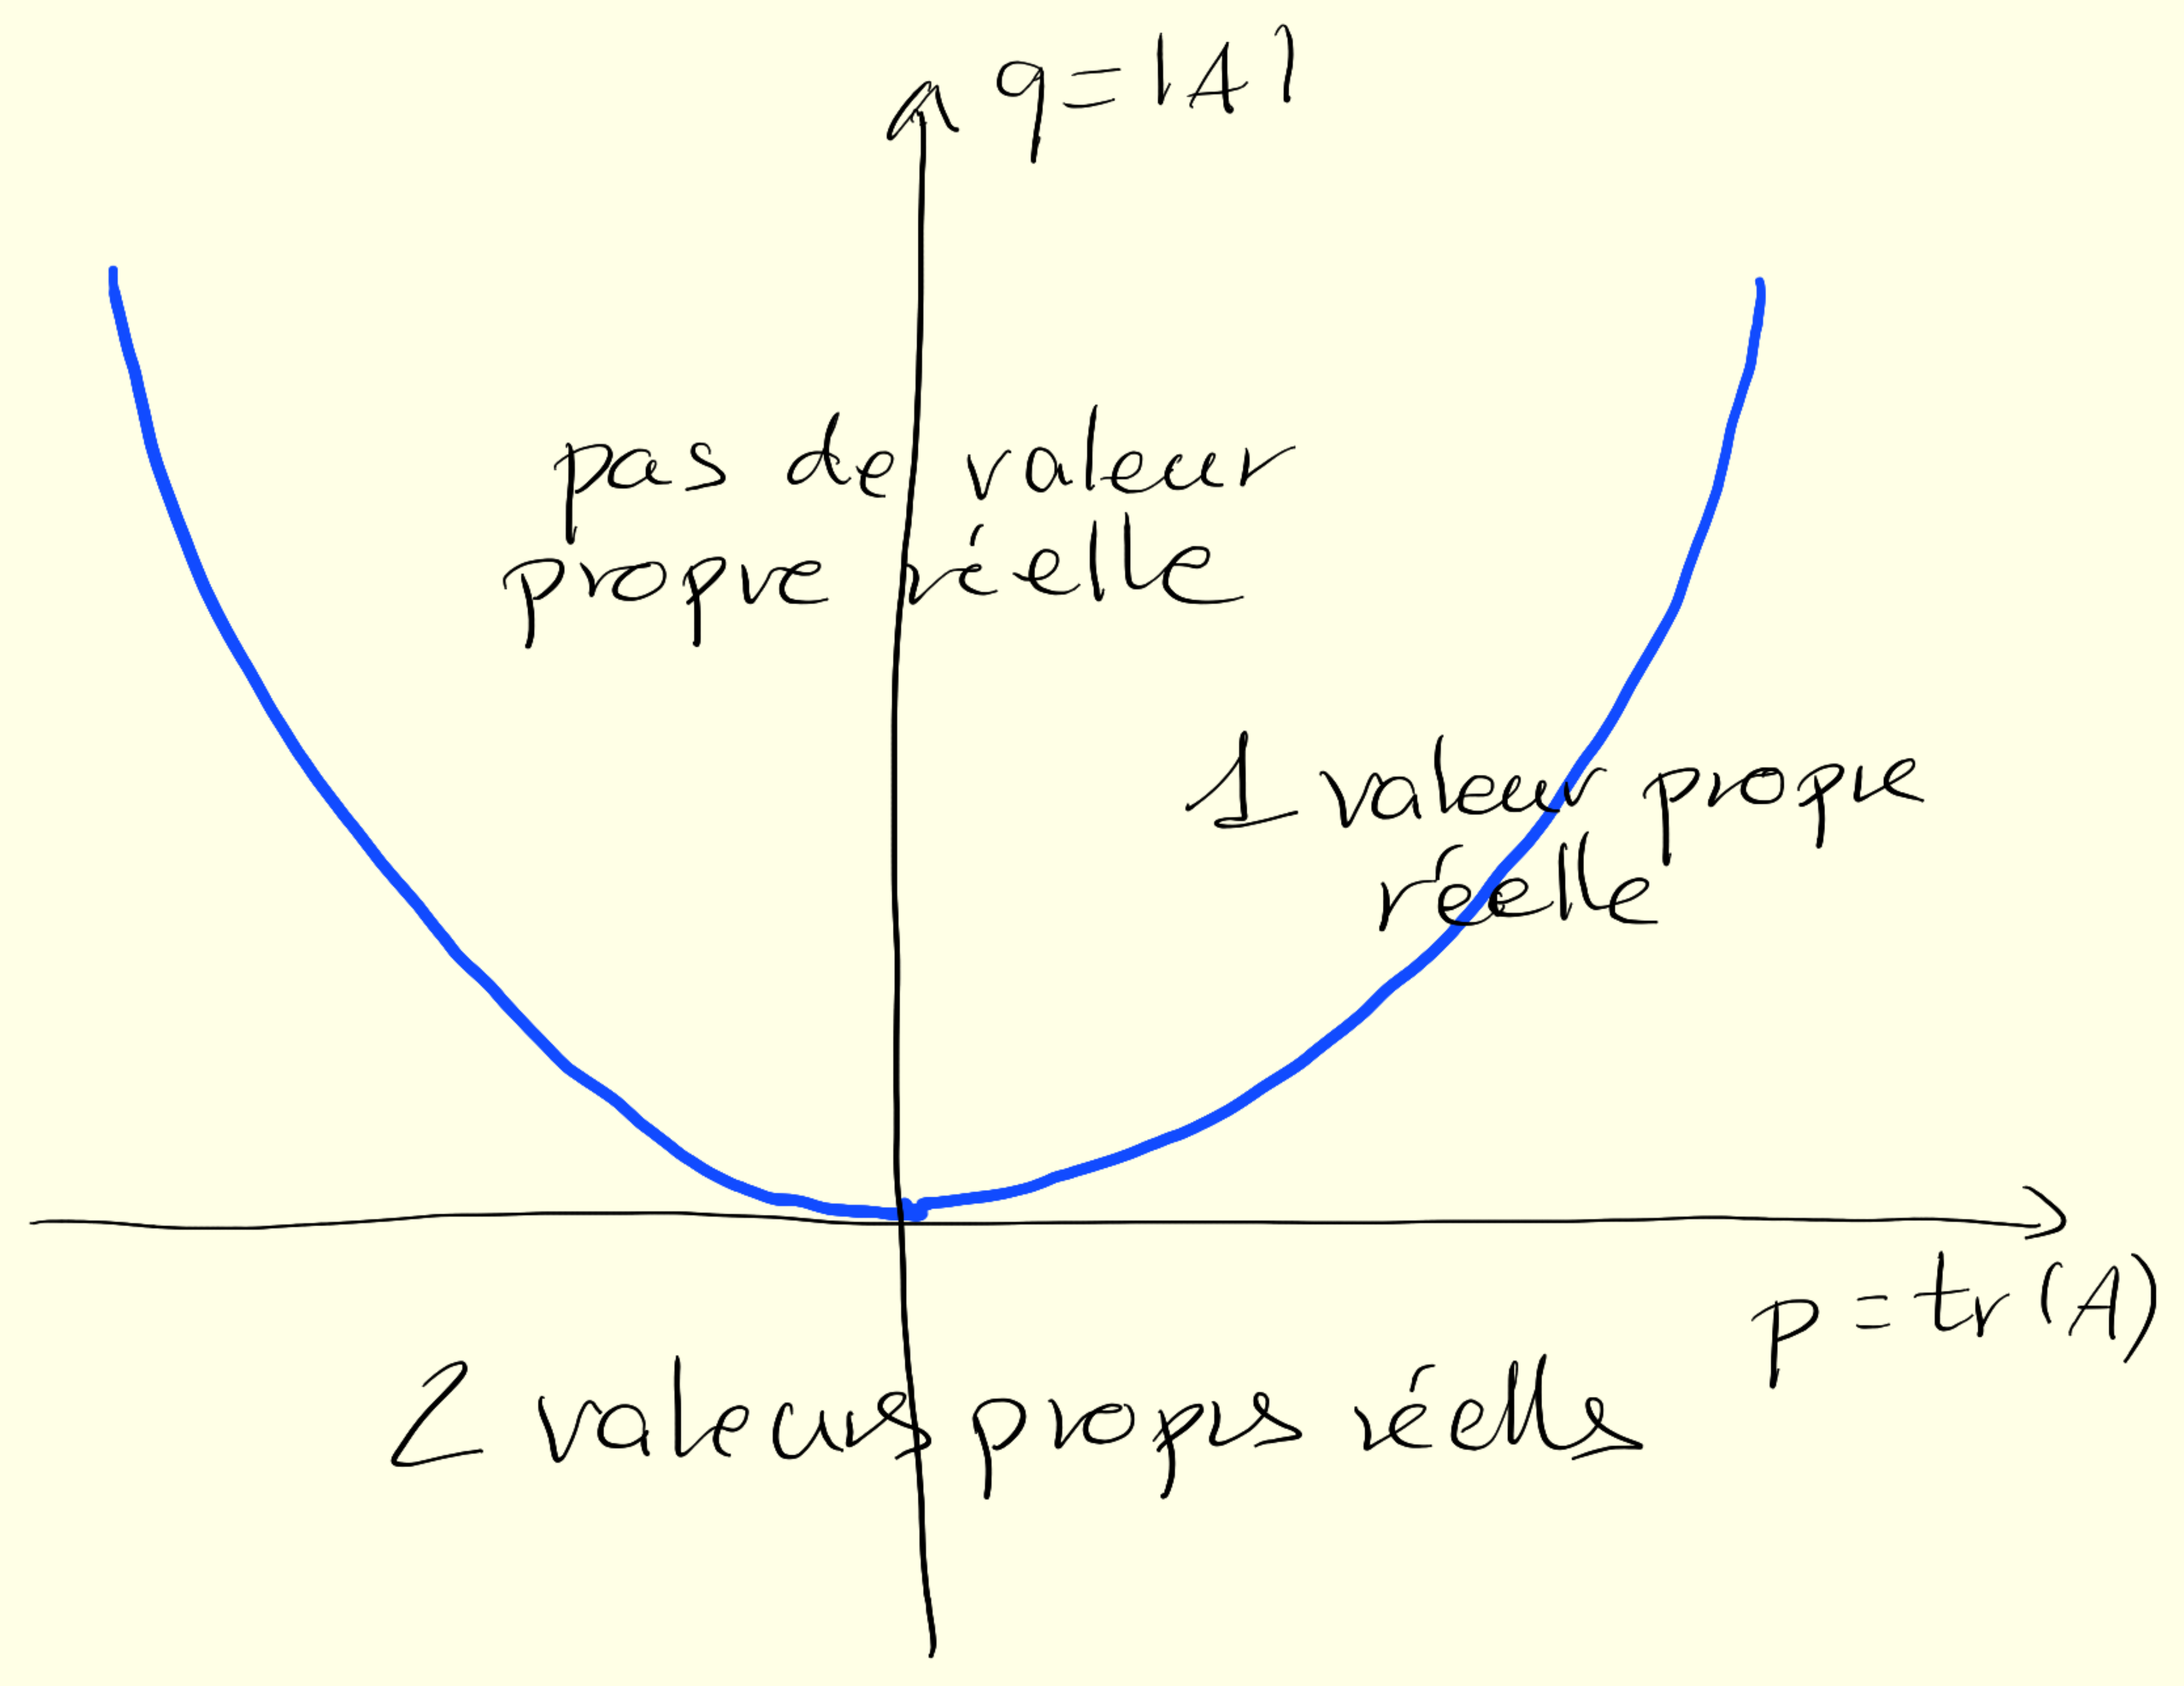 q = |A|
pas de valeur
propre réelle
1 valeur propre
réelle
p = tr(A)
2 valeurs propres réelles